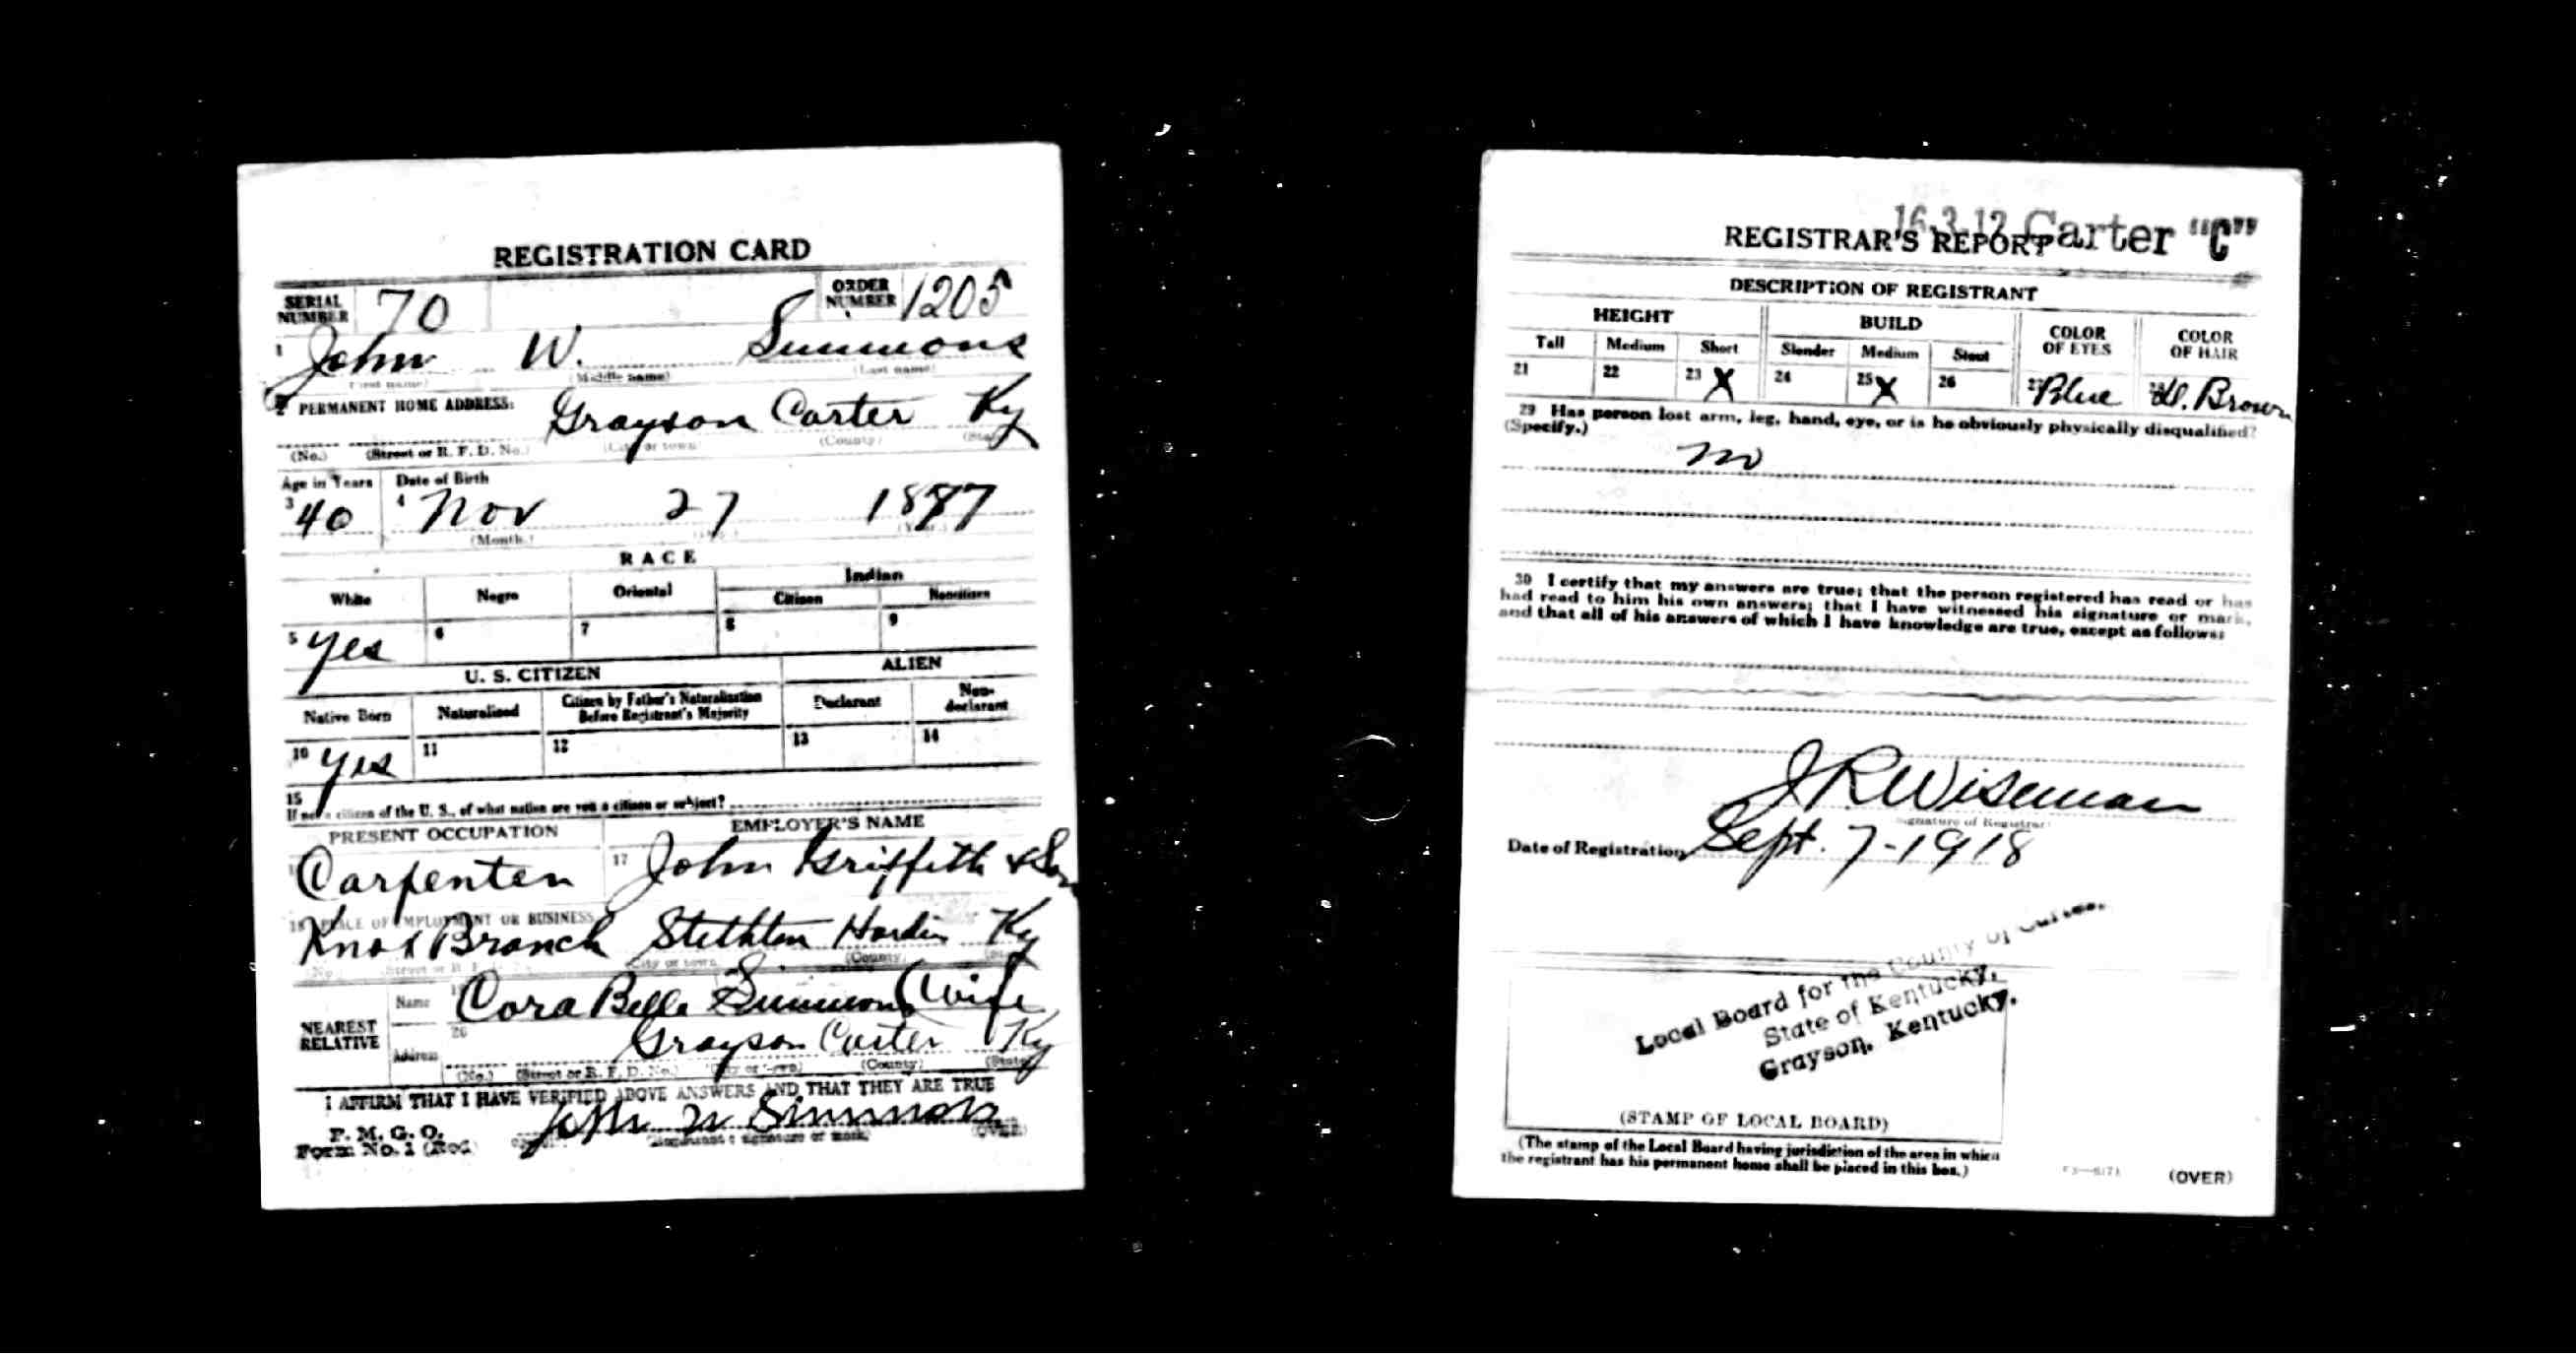 REGISTRATION CARD
SERIAL NUMBER 70 ORDER NUMBER 1205
1 John W. Simmons
(First name) (Middle name) (Last name)
2 PERMANENT HOME ADDRESS: Grayson Carter Ky
(No.) (Street or R. F. D. No.) (City or town) (County) (State)
Age in Years Date of Birth
3 40 4 Nov 27 1887
(Month.) (Year.)
RACE
White Negro Oriental Indian
Citizen Noncitizen
5 Yes 6 7 8 9
U. S. CITIZEN ALIEN
Native Born Naturalized Citizen by Father's Naturalization Before Registrant's Majority Declarant Non-declarant
10 Yes 11 12 13 14
15
If not a citizen of the U. S., of what nation are you a citizen or subject?
PRESENT OCCUPATION EMPLOYER'S NAME
Carpenter 17 John Griffith & Son
18 PLACE OF EMPLOYMENT OR BUSINESS
Knox Branch Stithton Hardin Ky
(No.) (Street or R. F. D. No.) (City or town) (County)
NEAREST RELATIVE
Name Cora Belle Simmons (Wife
Address 20 Grayson Carter Ky
(No.) (Street or R. F. D. No.) (City or town) (County) (State)
I AFFIRM THAT I HAVE VERIFIED ABOVE ANSWERS AND THAT THEY ARE TRUE
P. M. G. O.
Form No. 1 (Red) John W Simmons
(Registrant's signature or mark) (OVER)
16-3-12 Carter "C"
REGISTRAR'S REPORT
DESCRIPTION OF REGISTRANT
HEIGHT BUILD COLOR OF EYES COLOR OF HAIR
Tall Medium Short Slender Medium Stout
21 22 23 X 24 25 X 26 27 Blue Brown
29 Has person lost arm, leg, hand, eye, or is he obviously physically disqualified?
(Specify.)
no
30 I certify that my answers are true; that the person registered has read or has
had read to him his own answers; that I have witnessed his signature or mark,
and that all of his answers of which I have knowledge are true, except as follows:
J R Wiseman
Signature of Registrar
Date of Registration Sept. 7-1918
Local Board for the County of Carter.
State of Kentucky.
Grayson, Kentucky.
(STAMP OF LOCAL BOARD)
(The stamp of the Local Board having jurisdiction of the area in which
the registrant has his permanent home shall be placed in this box.)
(OVER)